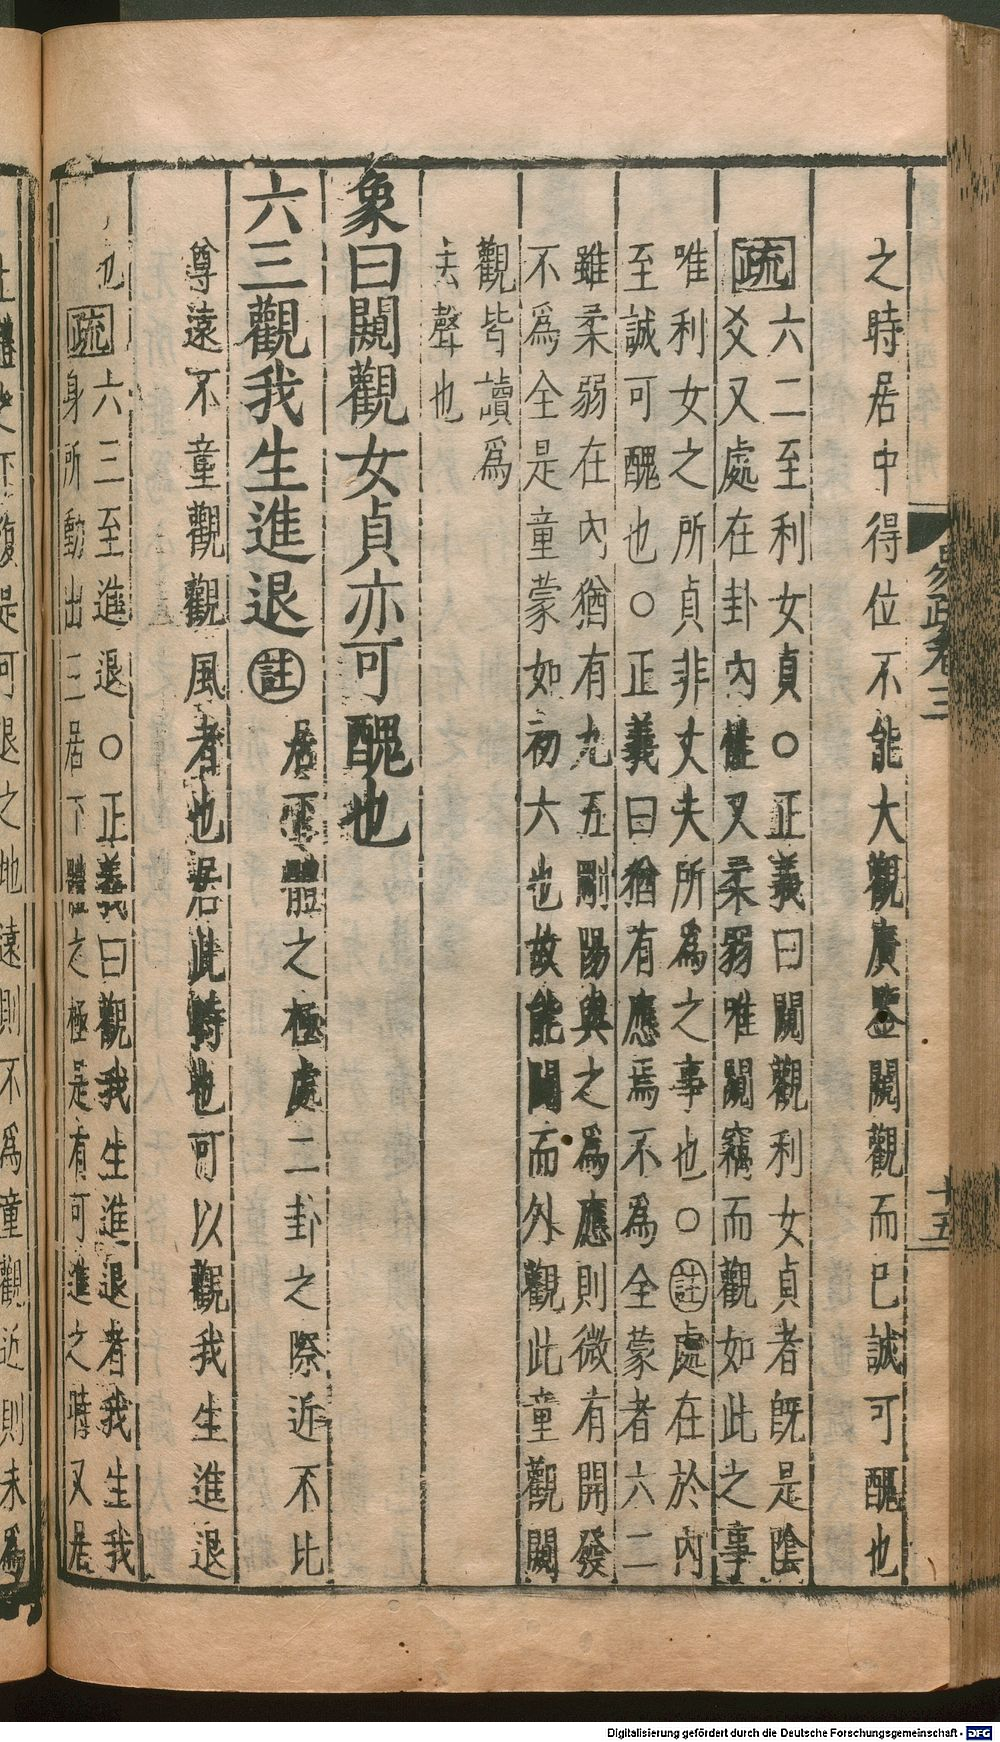 之時居中得位不能大觀廣鑒闚觀而已誠可醜也
疏
六二至利女貞○正義曰闚觀利女貞者旣是陰
爻又處在卦內性又柔弱唯闚竊而觀如此之事
唯利女之所貞非丈夫所爲之事也○註處在於內
至誠可醜也○正義曰猶有應焉不爲全蒙者六二
雖柔弱在內猶有九五剛陽與之爲應則微有開發
不爲全是童蒙如初六也故能闚而外觀此童觀闚
觀皆讀爲
去聲也
象曰闚觀女貞亦可醜也
六三觀我生進退註
居下體之極處二卦之際近不比
尊遠不童觀觀風者也居此時也可以觀我生進退
也疏
六三至進退○正義曰觀我生進退者我生我
身所動出三居下體之極是有可進之時又居
易疏卷三
十五
復是可退之地遠則不爲童觀近則未爲
Digitalisierung gefördert durch die Deutsche Forschungsgemeinschaft - DFG